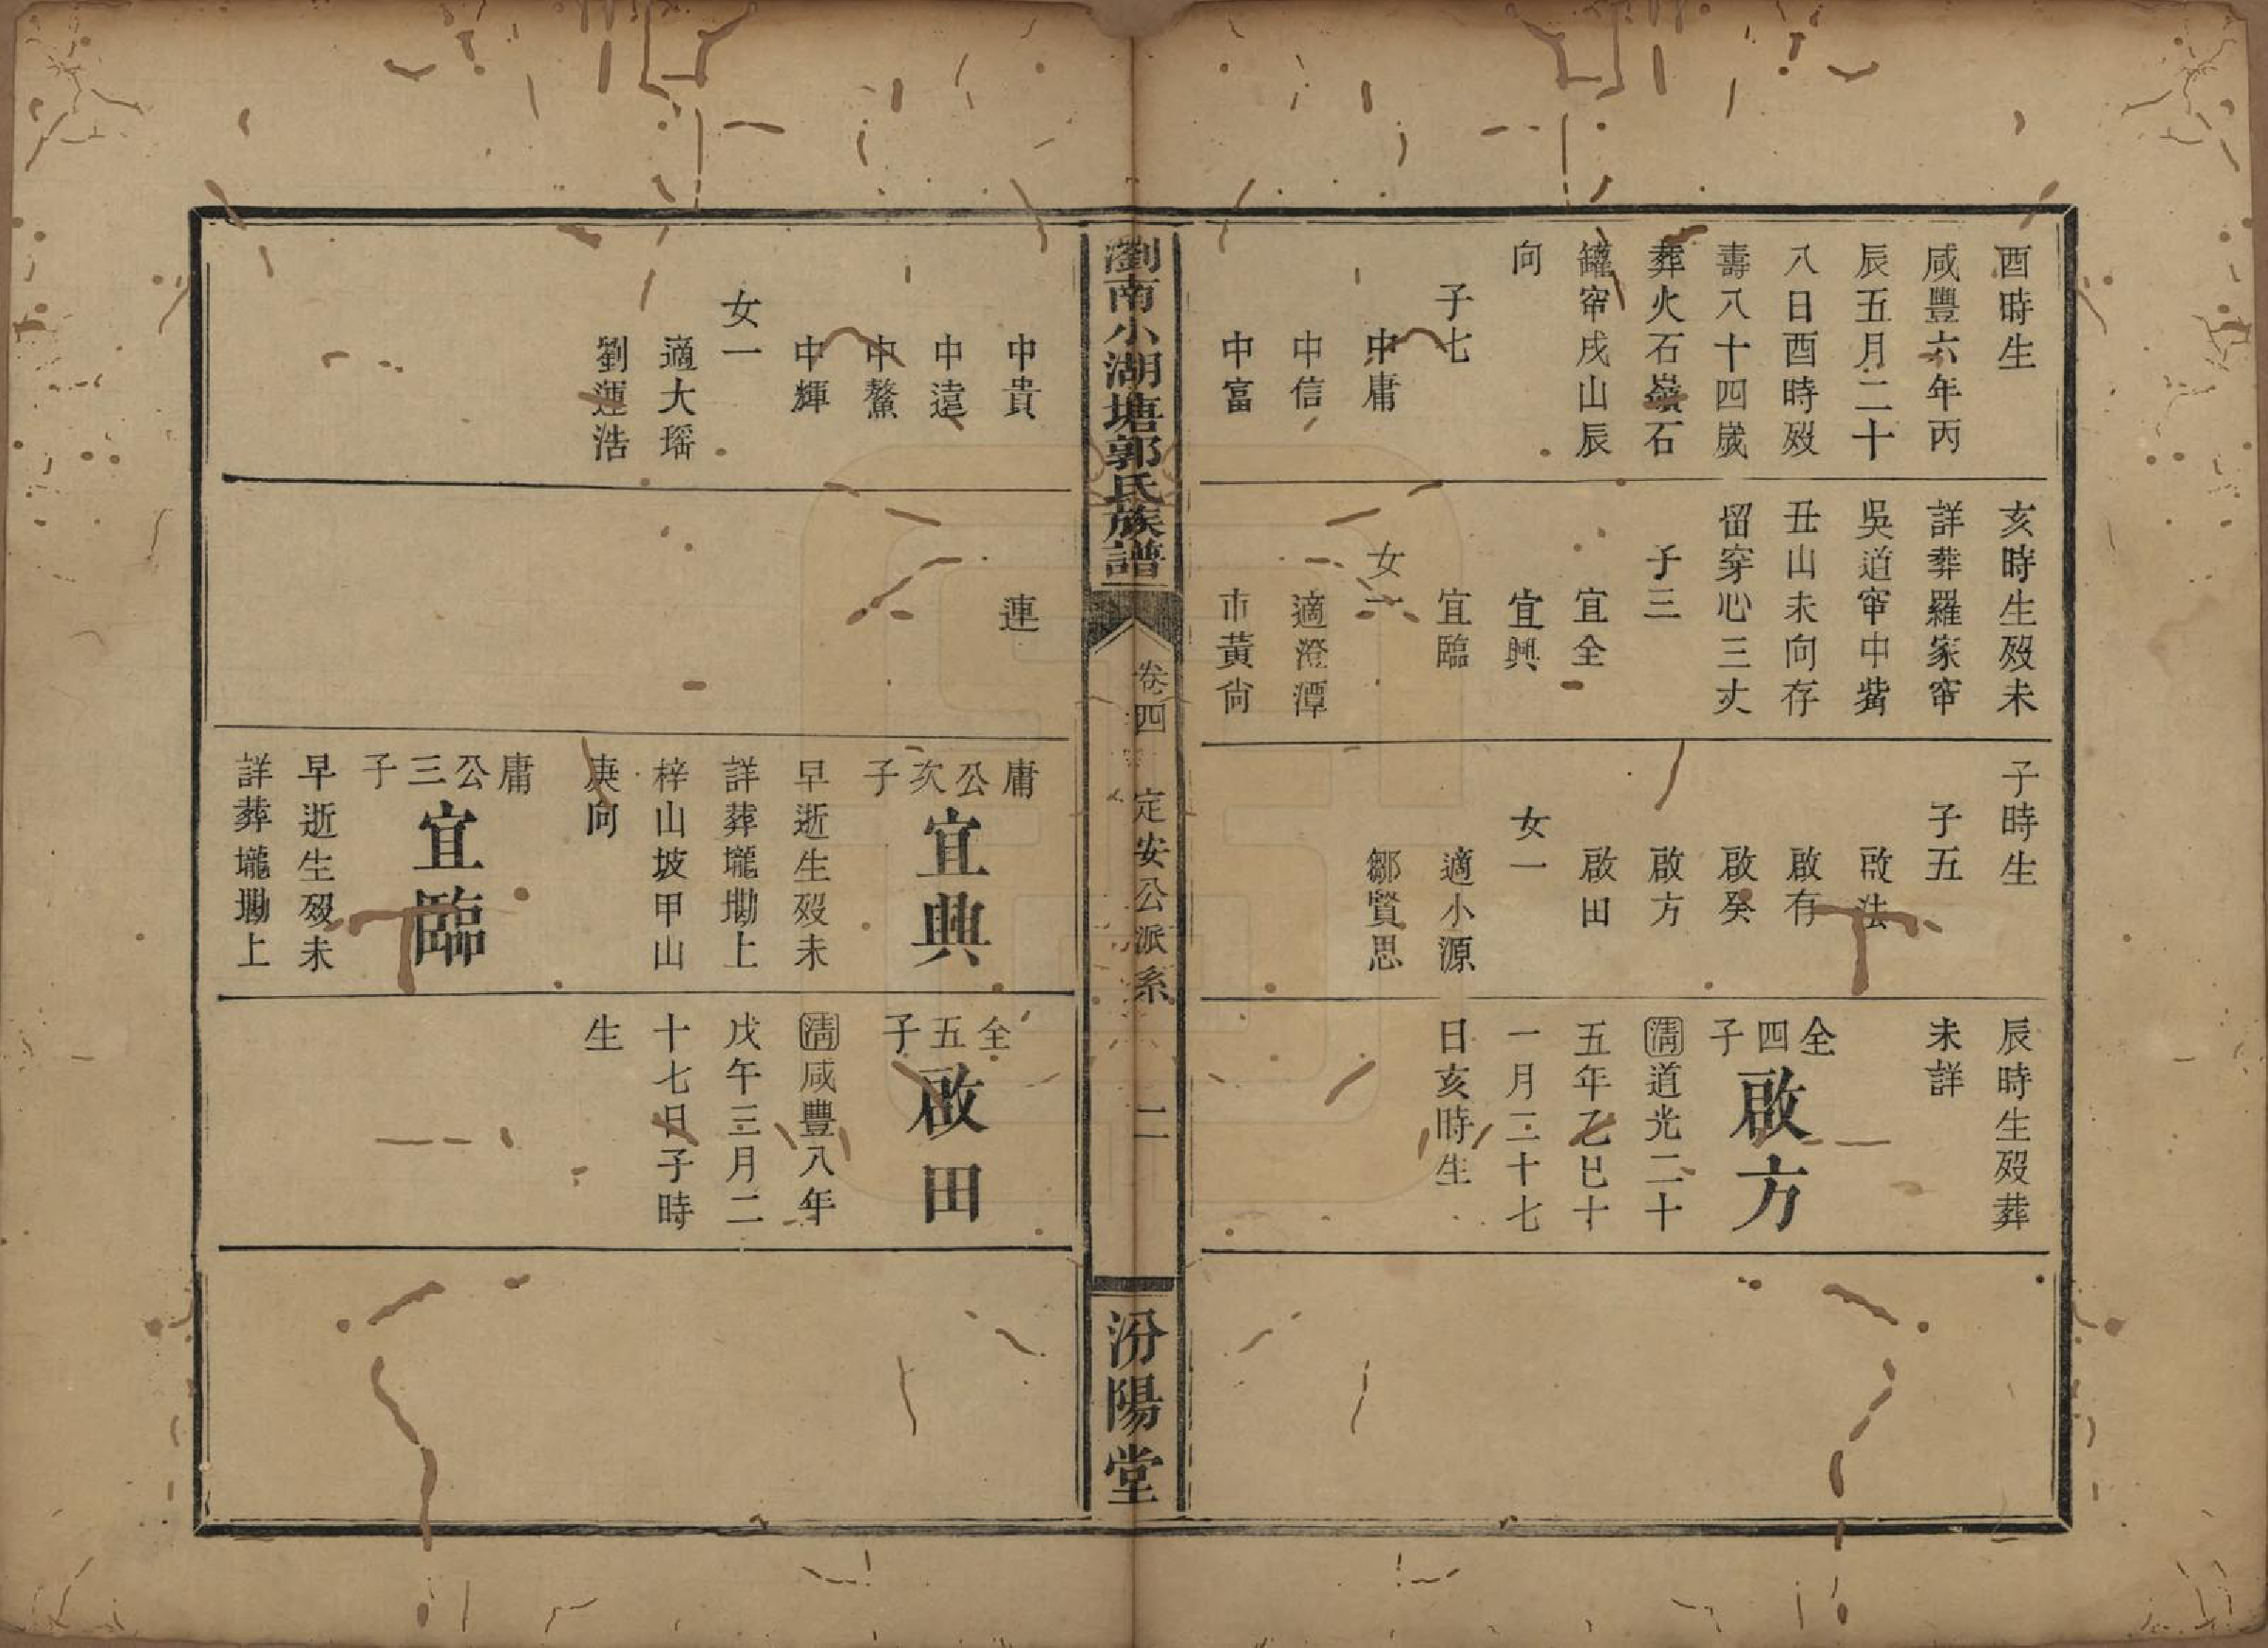 酉時生
咸豐六年丙
辰五月二十
八日酉時殁
壽八十四歲
葬火石嶺石
罐窂戌山辰
向
子七
中庸
中信
中富
亥時生殁未
詳葬羅家窂
吳道窂中觜
丑山未向存
留穿心三丈
子三
宜全
宜興
宜臨
女一
適澄潭
市黃尙
子時生
子五
啟法
啟有
啟癸
啟方
啟田
女一
適小源
鄒賢思
辰時生殁葬
未詳
全四子
啟方
清道光二十
五年乙巳十
一月二十七
日亥時生
瀏南小湖塘郭氏族譜
卷四
定安公派系
二
汾陽堂
中貴
中遠
中鰲
中輝
女一
適大瑶
劉運浩
連
庸公次子
宜興
早逝生殁未
詳葬壠墈上
梓山坡甲山
庚向
庸公三子
宜臨
早逝生殁未
詳葬壠墈上
全五子
啟田
清咸豐八年
戊午三月二
十七日子時
生